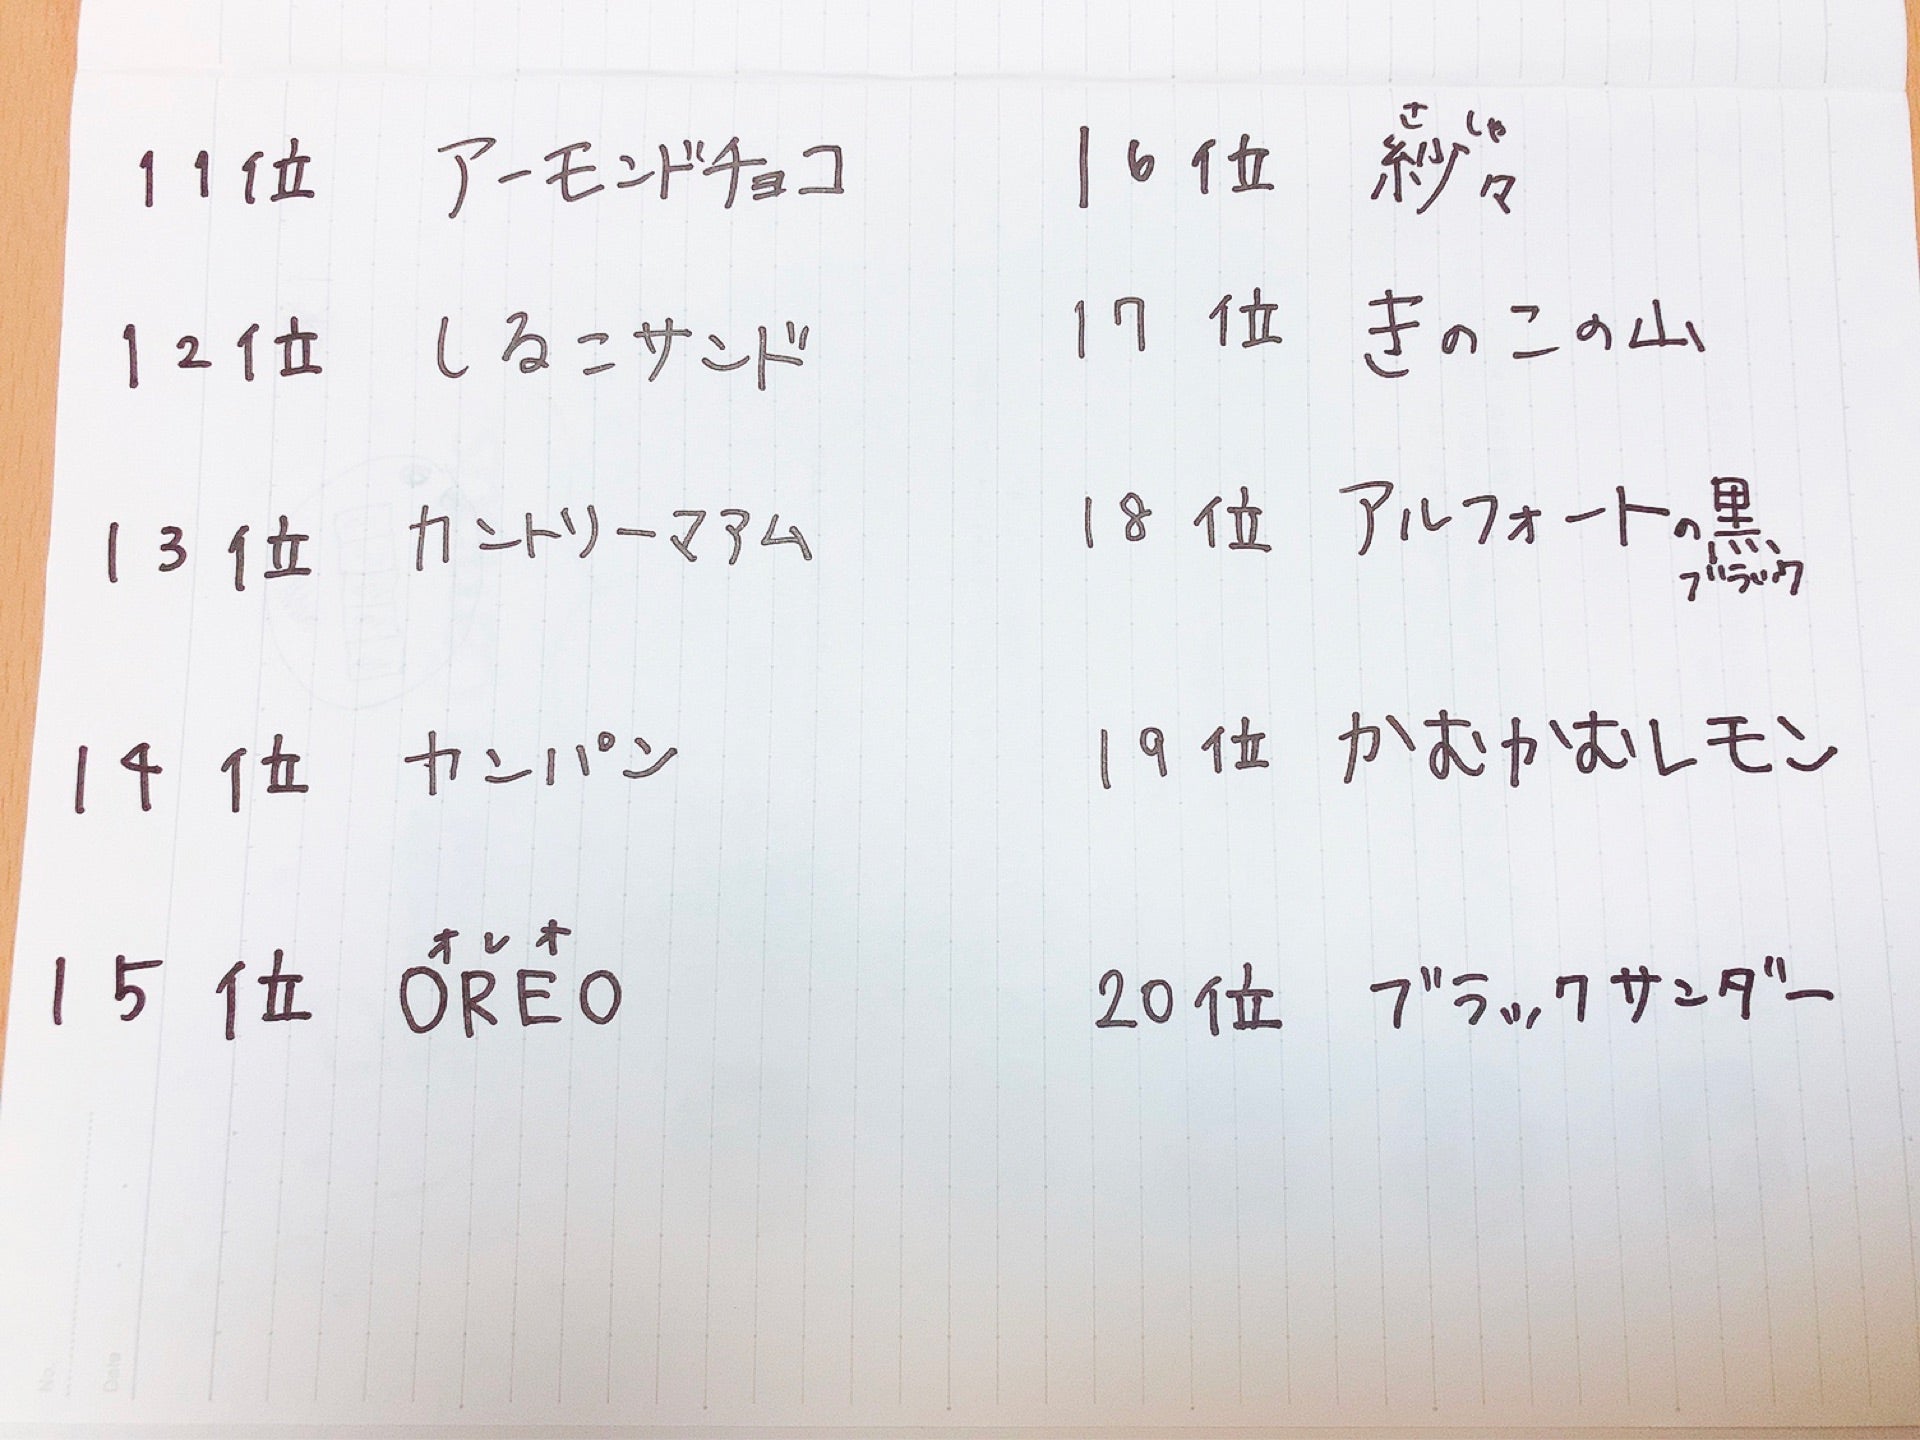 11位 アーモンドチョコ
12位 しるこサンド
13位 カントリーマアム
14位 カンパン
オレオ
15位 OREO
さ しゃ
16位 紗々
17位 きのこの山
18位 アルフォートの黒
ブラック
19位 かむかむレモン
20位 ブラックサンダー
No.
Date